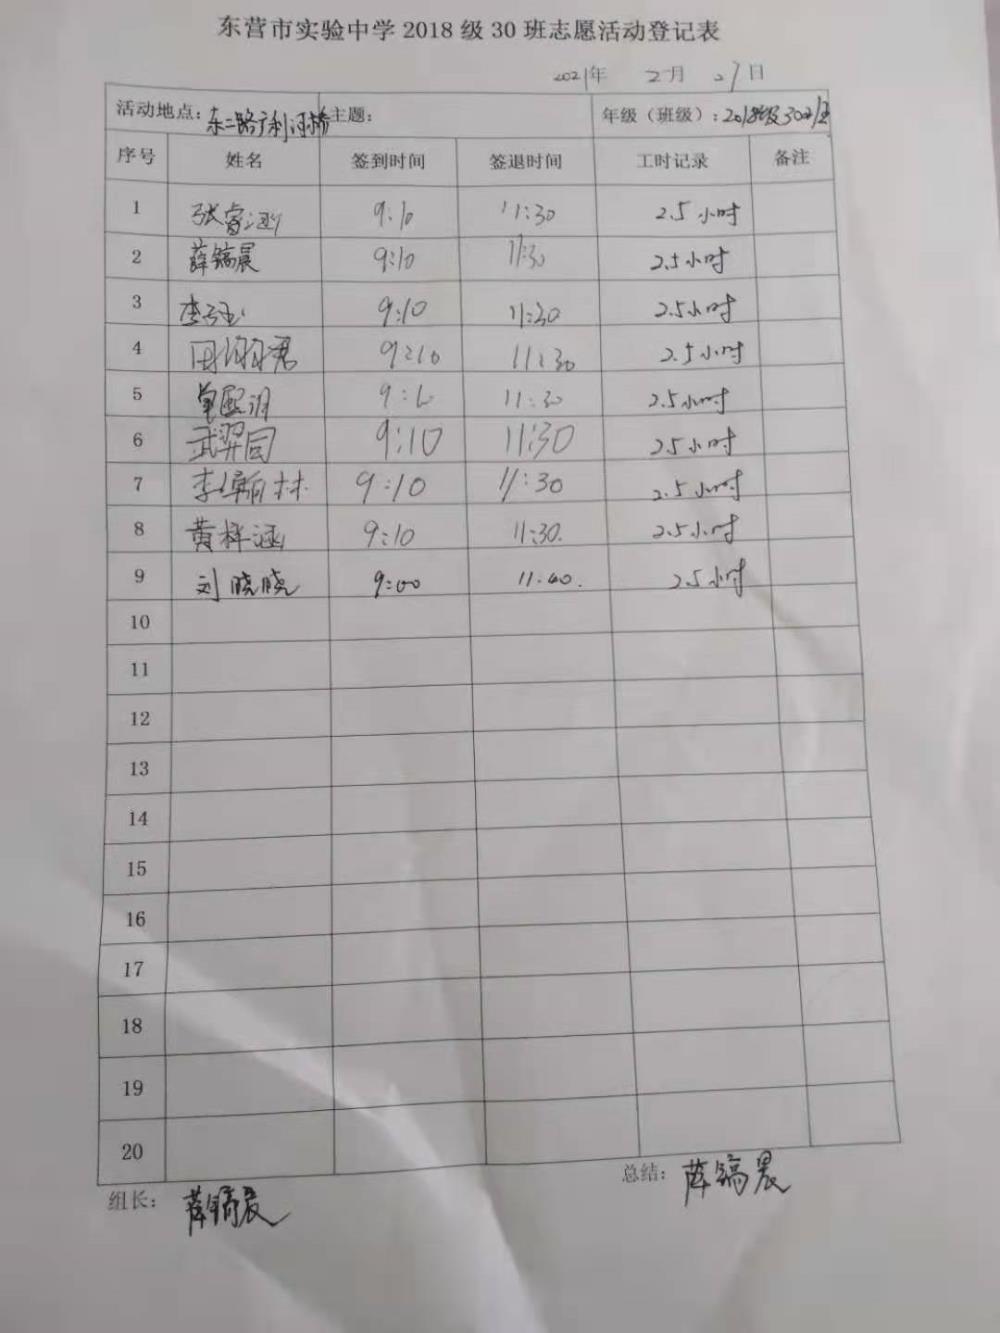 东营市实验中学 2018 级 30 班志愿活动登记表
2021年 2月 27日
活动地点：东二路广利河桥 主题： 年级（班级）：2018级30班
序号 姓名 签到时间 签退时间 工时记录 备注
1 张睿涵 9:10 11:30 2.5小时
2 薛镐晨 9:10 11:30 2.5小时
3 李 9:10 11:30 2.5小时
4 田 君 9:10 11:30 2.5小时
5 9:10 11:30 2.5小时
6 武羿同 9:10 11:30 2.5小时
7 李 林 9:10 11:30 2.5小时
8 黄梓涵 9:10 11:30. 2.5小时
9 刘晓晓 9:00 11:40. 2.5小时
10
11
12
13
14
15
16
17
18
19
20
组长：薛镐晨 总结：薛镐晨